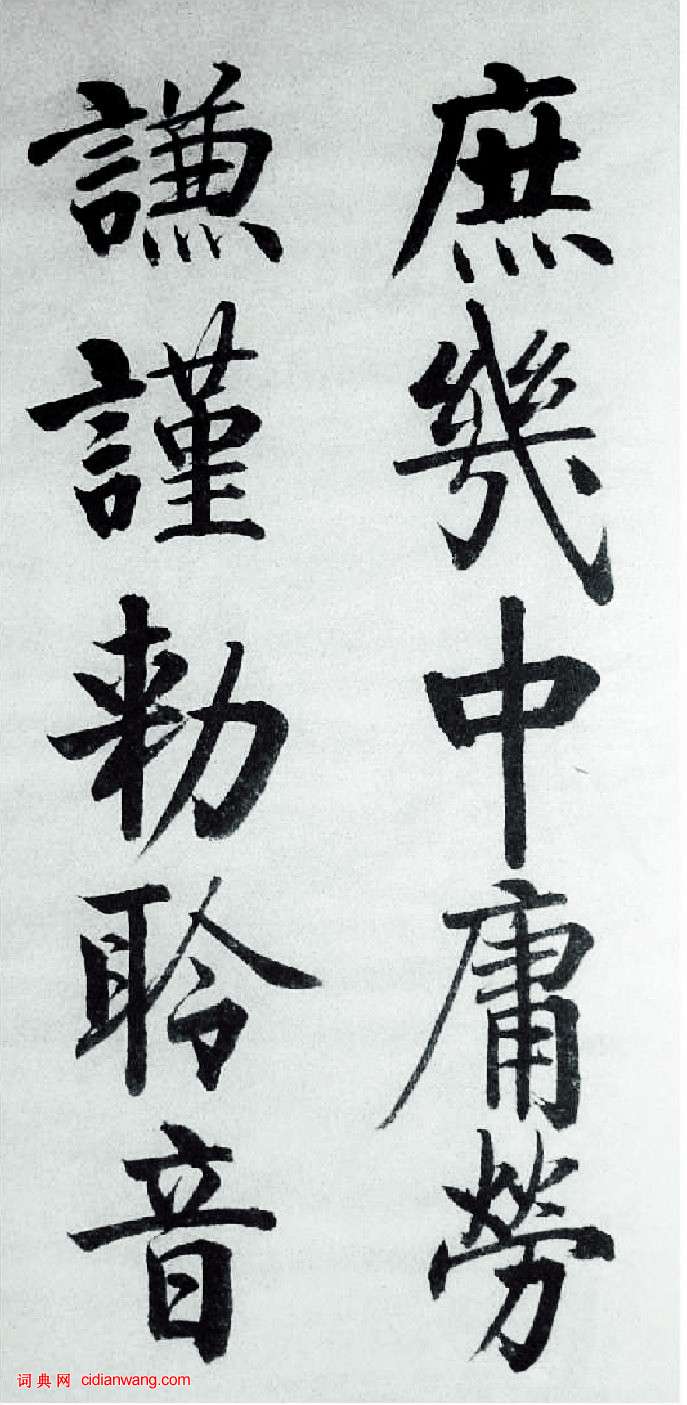 庶幾中庸勞
謙謹勅聆音
词典网 cidianwang.com